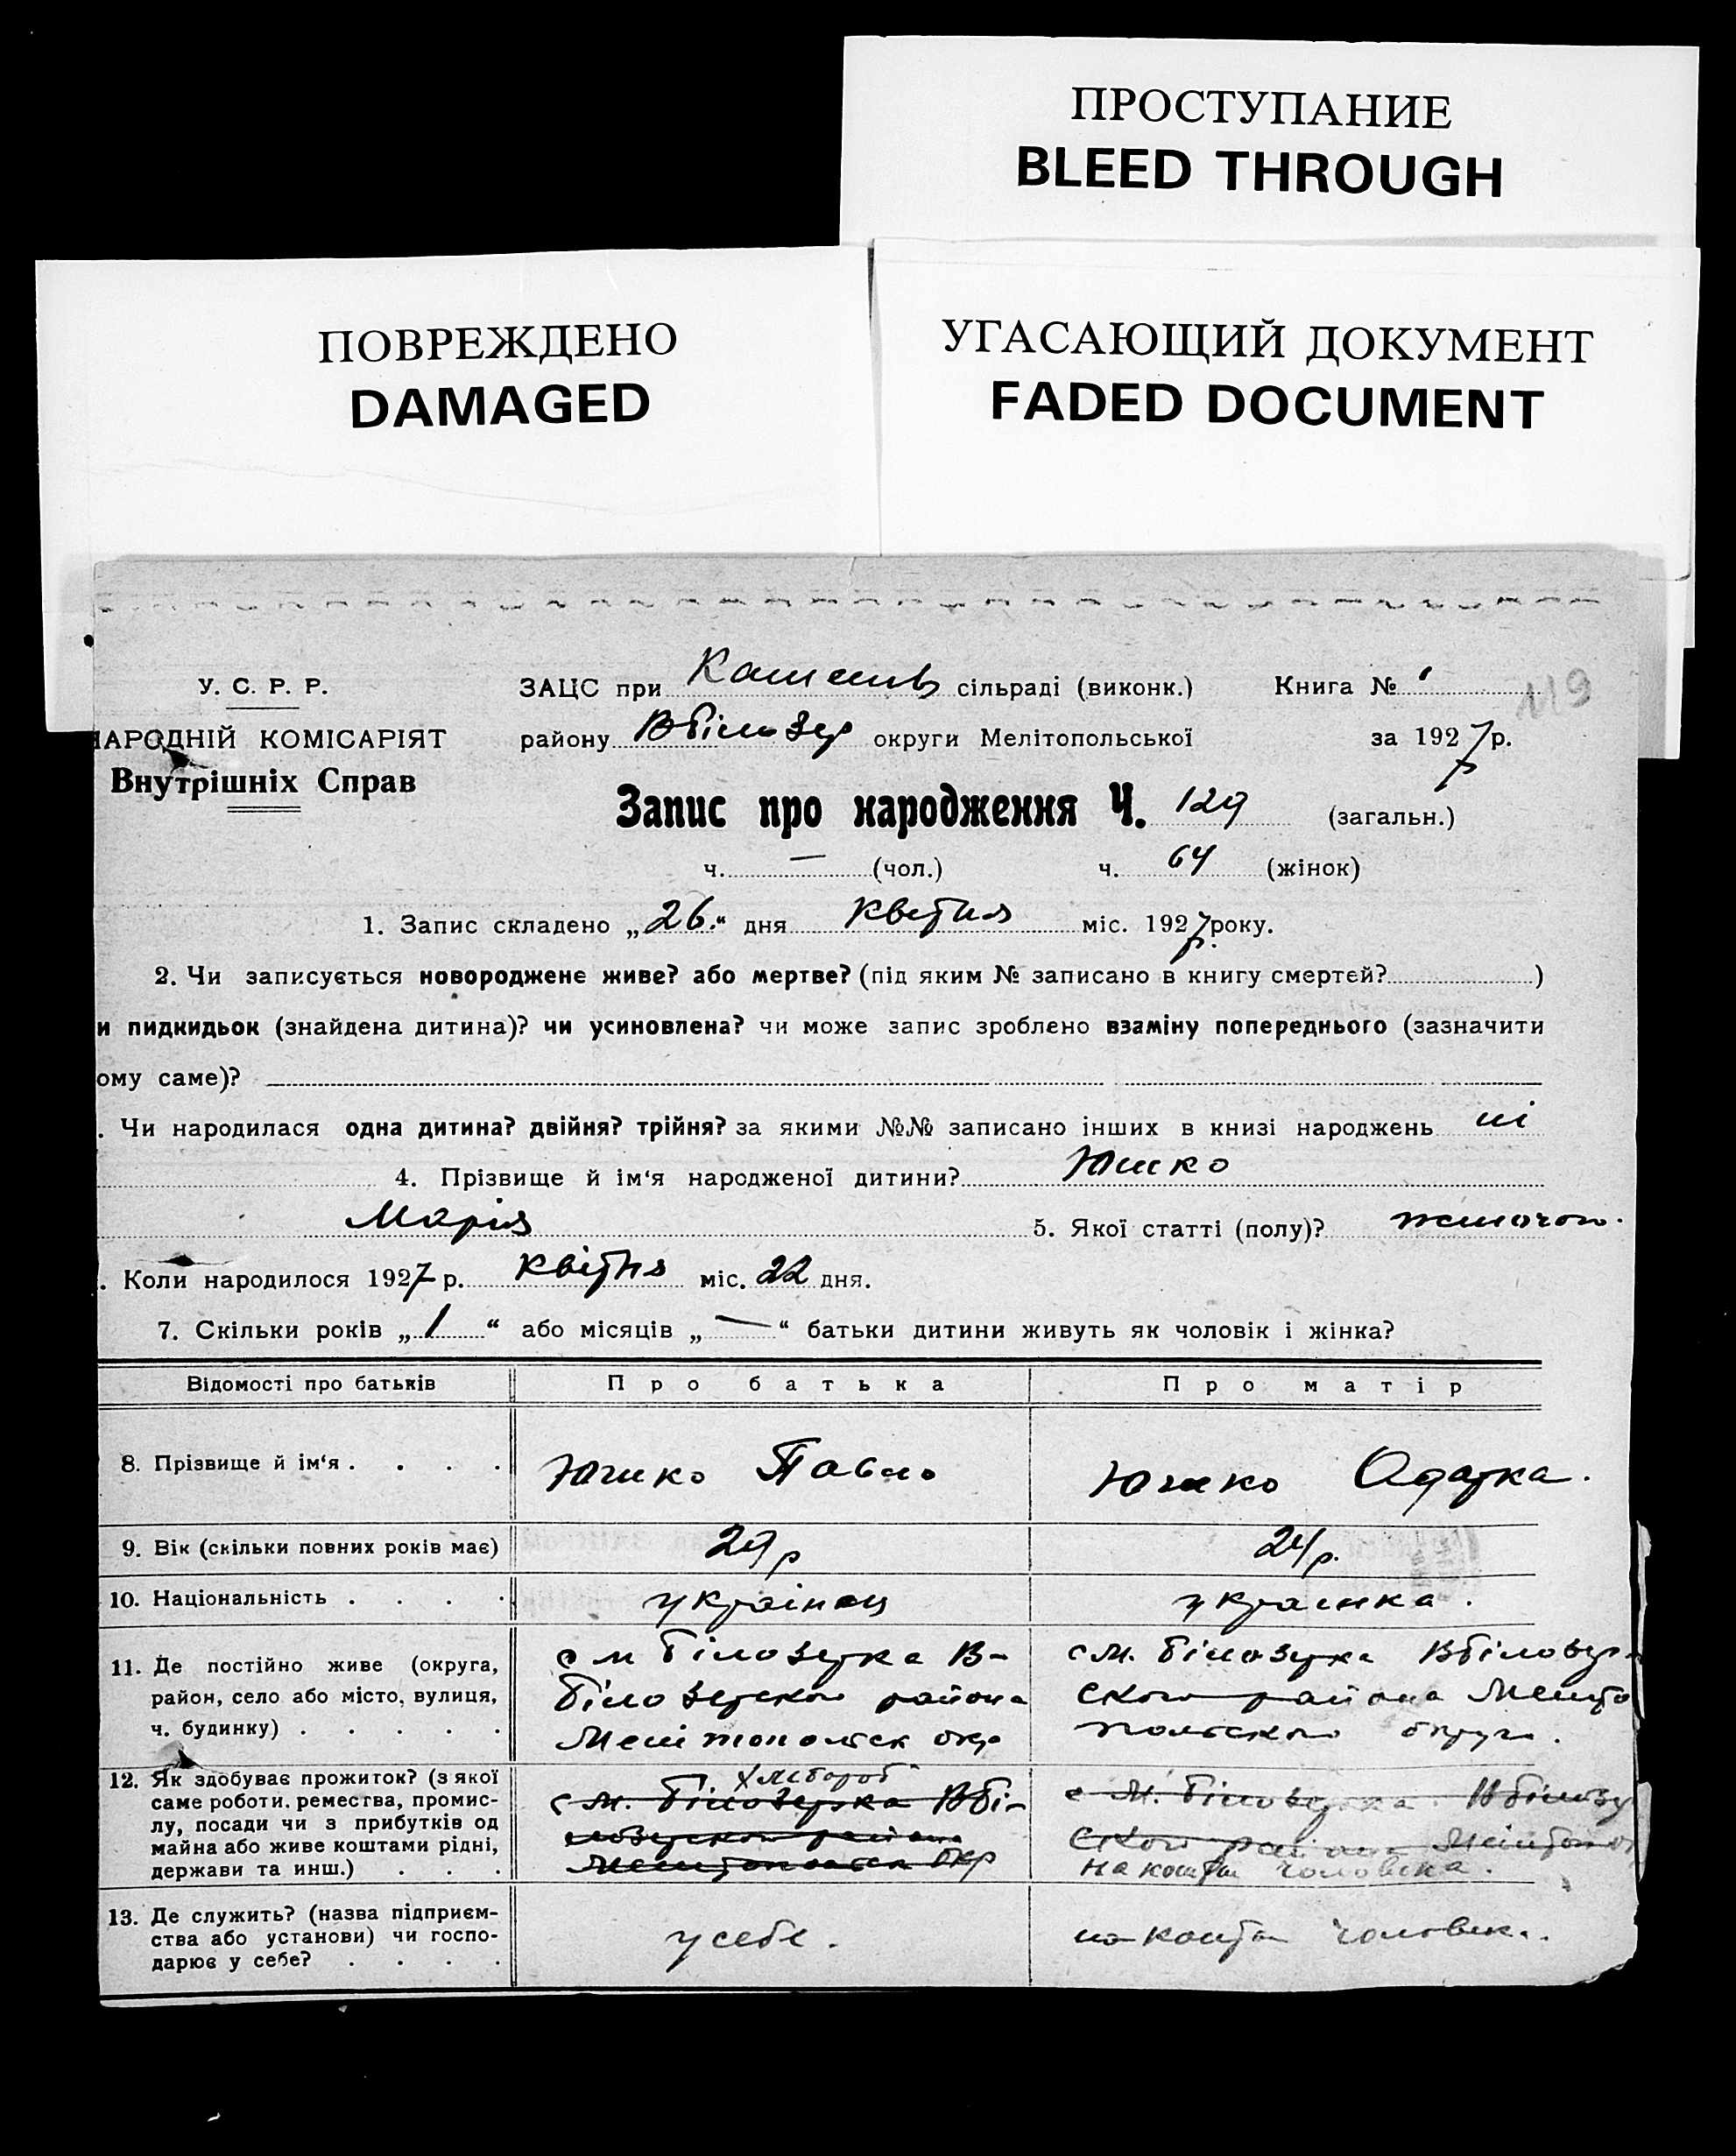 ПРОСТУПАНИЕ
BLEED THROUGH
ПОВРЕЖДЕНО
DAMAGED
УГАСАЮЩИЙ ДОКУМЕНТ
FADED DOCUMENT
119
У. С. Р. Р.
ЗАЦС при сільраді (виконк.) Книга №
НАРОДНІЙ КОМІСАРІЯТ
району ВБілозер округи Мелітопольської за 1927 р.
Внутрішніх Справ
Запис про народження Ч. 129 (загальн.)
ч. — (чол.) ч. 64 (жінок)
1. Запис складено „26.“ дня квітня міс. 1927 року.
2. Чи записується новороджене живе? або мертве? (під яким № записано в книгу смертей? )
и пидкидьок (знайдена дитина)? чи усиновлена? чи може запис зроблено взаміну попереднього (зазначити
ому саме)?
. Чи народилася одна дитина? двійня? трійня? за якими №№ записано інших в книзі народжень ні
4. Прізвище й ім‘я народженої дитини? Юшко
Марія 5. Якої статті (полу)?
. Коли народилося 1927 р. квітня міс. 22 дня.
7. Скільки років „1“ або місяців „—“ батьки дитини живуть як чоловік і жінка?
Відомості про батьків Про батька Про матір
8. Прізвище й ім‘я . . . . Юшко Павло Юшко Одарка.
9. Вік (скільки повних років має) 29 р 24 р.
10. Національність . . . . українец украинка.
11. Де постійно живе (округа, с М Білозерка В- с М. Білозерка ВБілозер-
район, село або місто, вулиця, Білозерского района ского района Меліто
ч. будинку) . . . . . Мелітопольск окр польского округи.
12. Як здобуває прожиток? (з якої Хлібороб
саме роботи, ремества, промис- с М. Білозерка ВБі- с М. Білозерка ВБілозер
лу, посади чи з прибутків од
майна або живе коштами рідні, лозерского района ского района Мелітопо
держави та инш.) . . . Мелітопольск окр на кошти чоловіка.
13. Де служить? (назва підприєм-
ства або установи) чи госпо- у себе. на кошти чоловік..
дарює у себе? . . . .